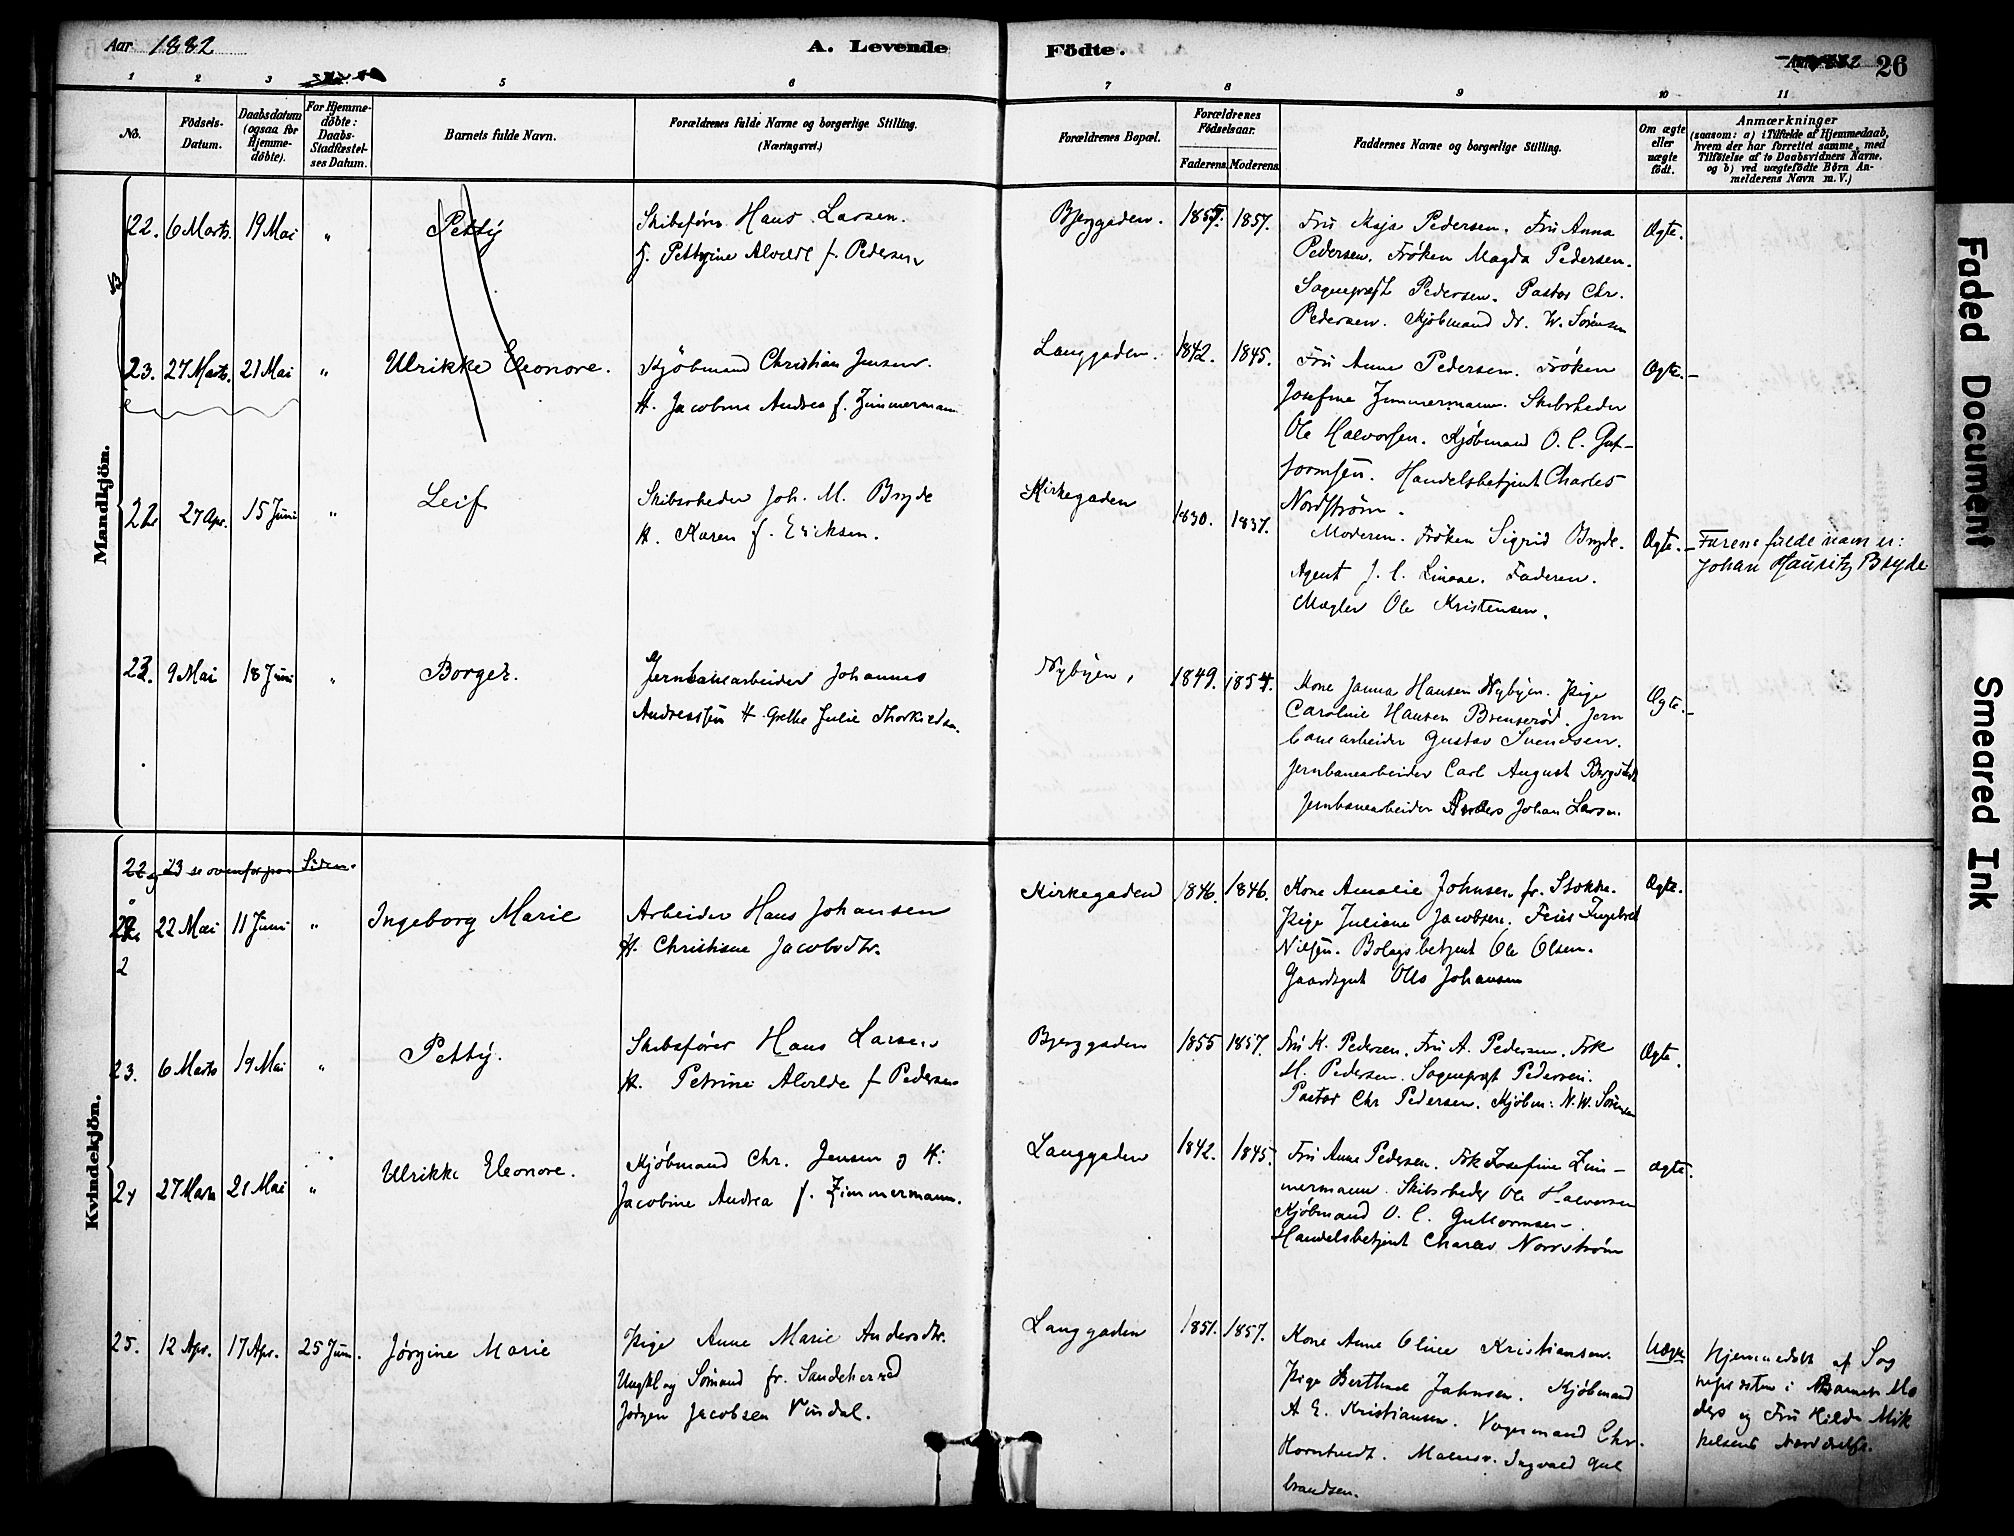 Aar 1882
A. Levende
Födte.
1882 26
1 2 3 5 6 7 8 9 10 11
No.
Födsels-
Datum.
Daabsdatum
(ogsaa for
Hjemme-
döbte).
For Hjemme-
döbte:
Daabs-
Stadfæstel-
ses Datum.
Barnets fulde Navn.
Forældrenes fulde Navne og borgerlige Stilling.
(Næringsvei.)
Forældrenes Bopæl.
Forældrenes
Födselsaar.
Faderens. Moderens.
Faddernes Navne og borgerlige Stilling.
Om ægte
eller
uægte
födt.
Anmærkninger
(saasom: a) i Tilfælde af Hjemmedaab,
hvem der har forrettet samme, med
Tilföielse af to Daabsvidners Navne.
og b) ved uægtefödte Börn An-
melderens Navn m. V.)
Mandkjön.
22. 6 Marts. 19 Mai " Petty
Skibsfører Hans Larsen.
H. Pettyine Alvilde f. Pedersen
Bjerggaden. 1855. 1857.
Fru Maja Pedersen. Fru Anna
Pedersen. Frøken Magda Pedersen.
Sognepræst Pedersen. Pastor Chr.
Pedersen. Kjøbmand N. W. Sørensen
Ægte.
23. 27 Marts. 21 Mai " Ulrikke Eleonore.
Kjøbmand Christian Jensen.
H. Jacobine Andrea f. Zimmermann
Langgaden. 1842. 1845.
Fru Anne Pedersen. Frøken
Josefine Zimmermann. Skibsreder
Ole Halvorsen. Kjøbmand O. C. Gut-
tormsen. Handelsbetjent Charles
Nordstrøm.
Ægte.
22 27 Apr. 15 Juni " Leif
Skibsreder Joh. M. Bryde
H. Karen f. Ericksen.
Kirkegaden 1830. 1837.
Moderen. Frøken Sigrid Bryde.
Agent J. C. Linaae. Faderen.
Mægler Ole Kristensen.
Ægte.
Farens fulde navn er:
Johan Mauritz Bryde
23. 9 Mai 18 Juni " Borger.
Jernbanearbeider Johannes
Andreassen H Grethe Julie Thorkildsen.
Nybyen, 1849. 1854.
Kone Janna Hansen Nybyen. Pige
Caroline Hansen Brenserød. Jern
banearbeider Gustav Svendsen.
Jernbanearbeider Carl August
Jernbanearbeider Anders Johan Larsen.
Ægte.
Kvindekjön.
22 og 23 se ovenfor paa Siden.
22 22 Mai 11 Juni " Ingeborg Marie
2
Arbeider Hans Johansen
H. Christiane Jacobsdtr.
Kirkegaden 1846. 1846.
Kone Amalie Johnsen fr. Stokke.
Pige Juliane Jacobsen. Ingebret
Nilsen. Bolagsbetjent Ole Olsen.
Gaardsgut Olls Johansen
Ægte.
23. 6 Marts 19 Mai " Petty.
Skibsfører Hans Larsen
H. Petrine Alvilde f Pedersen
Bjerggaden 1855 1857.
Fru K. Pedersen. Fru A. Pedersen. Frk
M. Pedersen. Sognepræst Pedersen.
Pastor Chr Pedersen. Kjøbm: N. W. Sørensen
Ægte.
24 27 Marts 21 Mai " Ulrikke Eleonore.
Kjøbmand Chr. Jensen og H:
Jacobine Andrea f. Zimmermann.
Langgaden 1842. 1845.
Fru Anne Pedersen. Frk Josefine Zim-
mermann. Skibsreder Ole Halvorsen
Kjøbmand O. C. Guttormsen.
Handelsbetjent Charles Nordstrøm
ægte.
25. 12 Apr. 17 Apr. 25 Juni. Jørgine Marie
Pige Anne Marie Andersdtr.
Ungkl og Sømand fr. Sandeherred
Jørgen Jacobsen Vindal.
Langgaden 1851. 1857.
Kone Anne Oline Kristiansen.
Pige Berthine Jahnsen. Kjøbmand
A E. Kristiansen. Vognmand Chr.
Horntvedt. Ingvald Gul
brandsen.
Uægte
Hjemmedøbt af Sog
nepresten i Barnets Mo
ders og Fru Hilda Mik
kelsens Nærværelse.
Faded Document
Smeared Ink